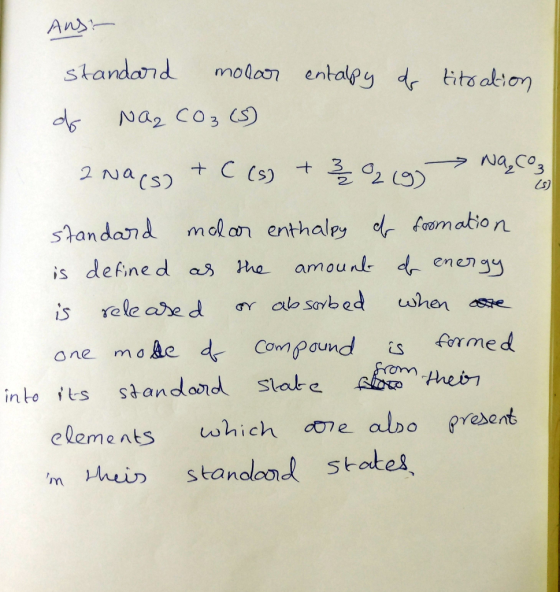 Ans:-
standard molar entalpy of titration
of Na₂ CO₃ (s)
2 Na(s) + C (s) + 3/2 O₂ (g) → Na₂CO₃ (s)
standard molar enthalpy of formation
is defined as the amount of energy
is released or absorbed when
one mole of compound is formed
into its standard state from their
elements which are also present
in their standard states.